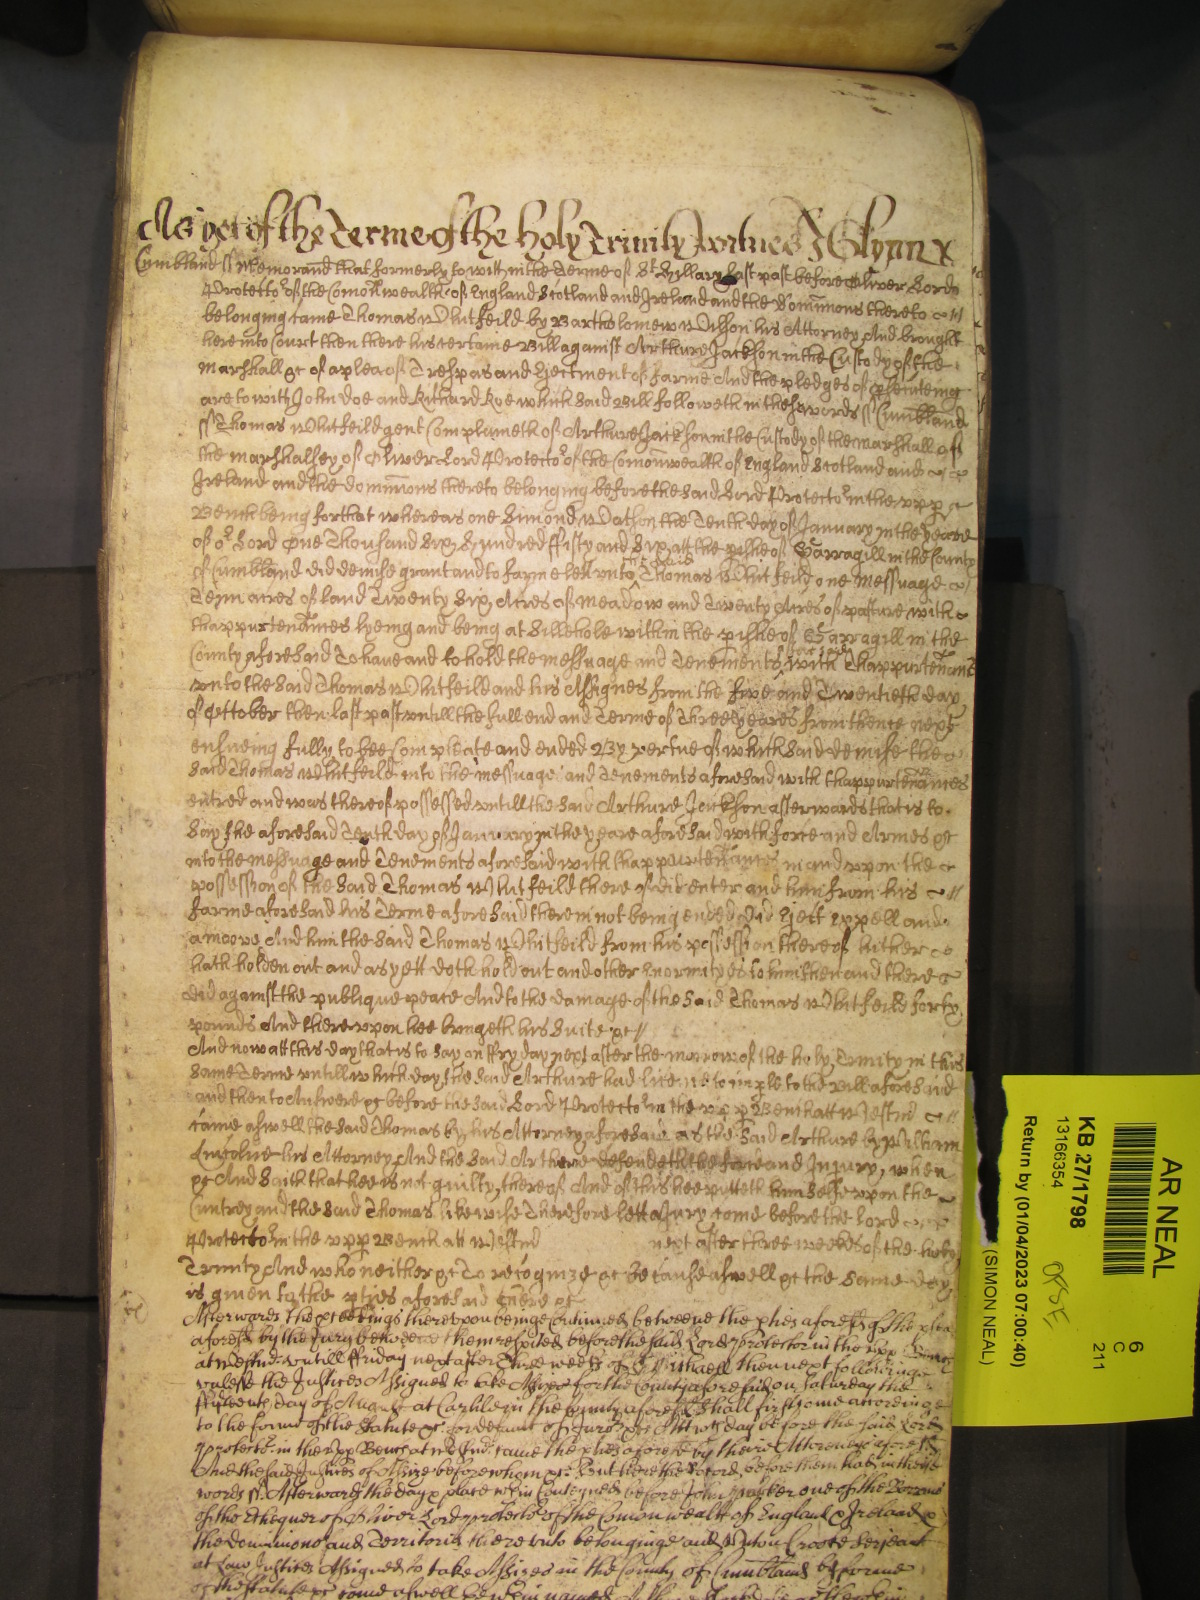 As yet of the Terme of the Holy Trinity Witnes J Glynn
Cumbland ss Memorand that formerly to witt in the Terme of St Hillary last past before Oliver Lord
Protector of the Comonwealth of England Scotland and Ireland and the Dominions thereto
belonging came Thomas Whitfeild by Bartholomew Wilson his Attorney And brought
here into Court then there his certaine Bill against Arthure Jackson in the Custody of the
Marshall &c of a plea of Trespas and Ejectment of farme And the pledges of psecuteing
are to witt John Doe and Richard Roe which said Bill followeth in these words ss Cumbland
ss Thomas Whitfeild gent Complaineth of Arthure Jackson in the Custody of the Marshall of
the Marshallsey of Oliver Lord Protector of the Comonwealth of England Scotland and
Ireland and the dominions thereto belonging before the said Lord Protector in the upp
Bench being for that whereas one Simond Watson the Tenth day of January in the yeare
of or Lord One Thousand Six Hundred ffifty and Six att the pishe of Garragill in the County
of Cumbland did demise grant and to farme lett unto the said Thomas Whitfeild one Messuage
Tenn acres of land Twenty Six Acres of meadow and Twenty Acres of pasture with
thappurtenances lyeing and being at Sillehole within the pishe of Garragill in the
County aforesaid To have and to hold the messuage and Tenements aforesaid with thappurtenances
unto the said Thomas Whitfeild and his Assignes from the five and Twentieth day
of October then last past untill the full end and Terme of Three yeares from thence next
ensueing fully to bee Compleate and ended By vertue of which said demise the
said Thomas Whitfeild into the messuage and Tenements aforesaid with thappurtenances
entred and was thereof possessed untill the said Arthure Jackson afterwards that is to
say the aforesaid Tenth day of January in the yeare aforesaid with force and Armes &c
into the messuage and Tenements aforesaid with thappurtenances in and upon the
possession of the said Thomas Whitfeild thereof did enter and him from his
farme aforesaid his Terme aforesaid therein not being ended did Eject Expell and
amoove And him the said Thomas Whitfeild from his possession thereof hither
hath holden out and as yett doth hold out and other Enormityes to him then and there
did against the publique peace And to the damage of the said Thomas Whitfeild forty
pounds And thereupon hee bringeth his Suite &c
And now att this day that is to say on ffryday next after the morrow of the holy Trinity in this
same Terme untill which day the said Arthure had licence to imple to the Bill aforesaid
and then to Answere &c before the said Lord Protector in the upp Bench att Westmr
came aswell the said Thomas by his Attorney aforesaid as the said Arthure by William
his Attorney And the said Arthure defendeth the force and Injury when
&c And saith that hee is not guilty thereof And of this hee putteth himselfe upon the
Cuntrey and the said Thomas likewise Therefore lett a Jury come before the Lord
Protector in the upp Bench att Westmr next after three weeks of the holy
Trinity And who neither &c To recognize &c Because aswell &c the same day
is given to the pties aforesaid there &c
Afterwards the pceedings thereupon beinge Continued betweene the pties aforesd of the plea
aforesd by the Jury betweene them respited before the said Lord Protector in the upp Bench
at Westmr untill ffriday next after Three weeks of St Michaell then next followinge
unlesse the Justices Assigned to take Assizes for the County aforesaid on Saturday the
day of August at Carlile in the County aforesd shall first come accordinge
to the forme of the Statute &c for default of Juror &c Att wch day before the said Lord
Protector in the upp Bench at Westmr came the pties aforesd by their Attorneys aforesd
And the said Justices of Assize before whom &c sent here the Record before them had in these
words ss Afterwards the day & place within Conteyned before John Parker one of the Barons
of the Exchequer of Oliver Lord Protector of the Comonwealth of England & Ireland &
the dominions and Territories thereunto belonginge and Unton Croote Serjeant
at Law Justices Assigned to take Assizes in the County of Cumbland by forme
of the Statute &c come aswell
AR NEAL
6
C
211
KB 27/1798
13166354
Return by (01/04/2023 07:00:40)
(SIMON NEAL)